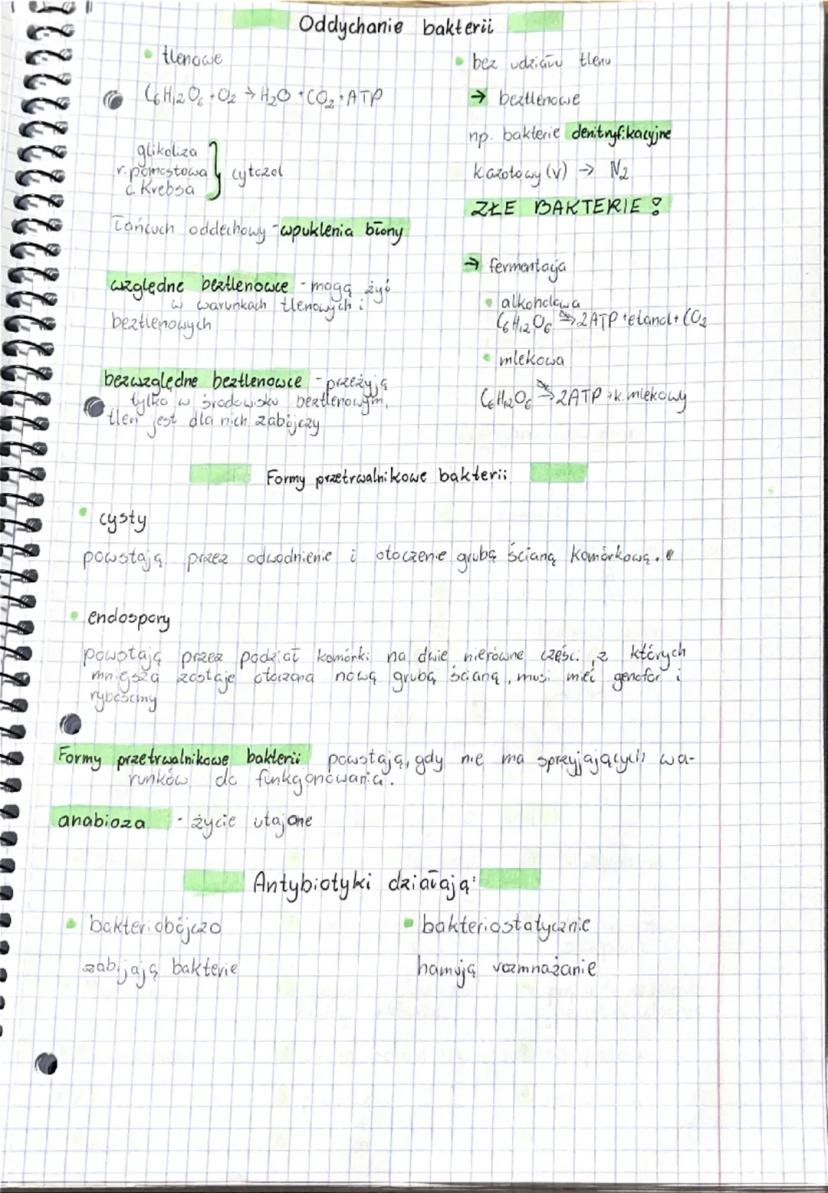 Oddychanie bakterii
• tlenowe
C6H12O6 + O2 → H2O + CO2 + ATP
glikoliza
r. pomostowa
c. Krebsa
} cytozol
łańcuch oddechowy - wpuklenia błony
względne beztlenowce - mogą żyć
w warunkach tlenowych i
beztlenowych
bezwzględne beztlenowce - przeżyją
tylko w środowisku beztlenowym,
tlen jest dla nich zabójczy
• bez udziału tlenu
→ beztlenowe
np. bakterie denitryfikacyjne
k. azotowy (V) → N2
ZŁE BAKTERIE!
→ fermentacja
• alkoholowa
C6H12O6 → 2ATP + etanol + CO2
• mlekowa
C6H12O6 → 2ATP + k. mlekowy
Formy przetrwalnikowe bakterii
• cysty
powstają przez odwodnienie i otoczenie grubą ścianą komórkową.
• endospory
powstają przez podział komórki na dwie nierówne części, z których
mniejsza zostaje otoczona nową grubą ścianą, musi mieć genofor i
rybosomy
Formy przetrwalnikowe bakterii powstają, gdy nie ma sprzyjających wa-
runków do funkcjonowania.
anabioza - życie utajone
Antybiotyki działają:
• bakteriobójczo
zabijają bakterie
• bakteriostatycznie
hamują rozmnażanie